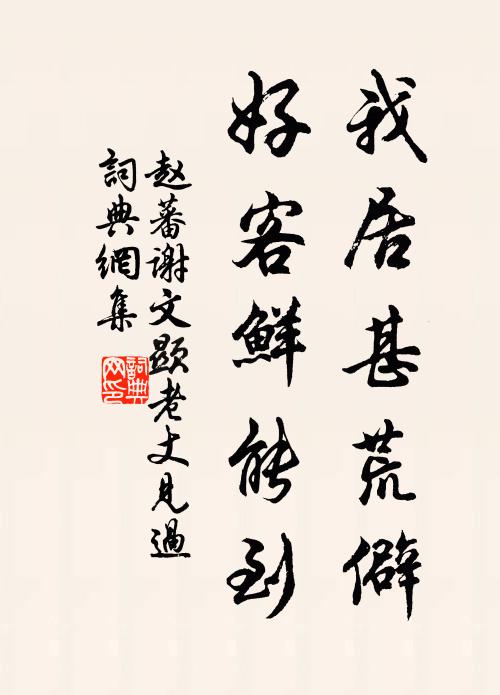 我居甚荒僻
好客鮮能到
赵蕃谢文顕老丈見過
詞典網集
詞典
网印